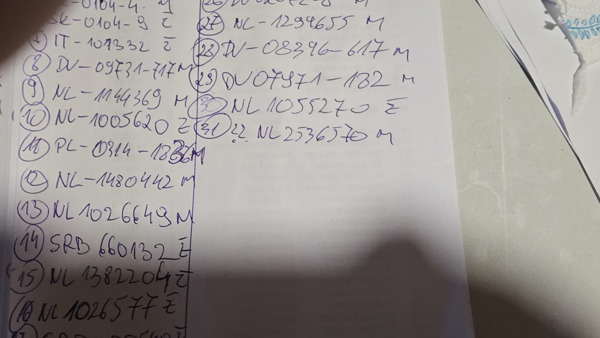 SR-0104-9 Ž
7 IT-109332 Ž
8 DV-09731-717 M
9 NL-1144369 M
10 NL-1005620 Ž
11 PL-0314-1836 M
12 NL-1480442 M
13 NL 1026649 M
14 SRB 660132 Ž
15 NL 1382204 Ž
16 NL 1026577 Ž
27 NL-1294655 M
28 DV-08396-617 M
29 DV 07971-132 M
30 NL 1055270 Ž
31 ?? NL 2536570 M